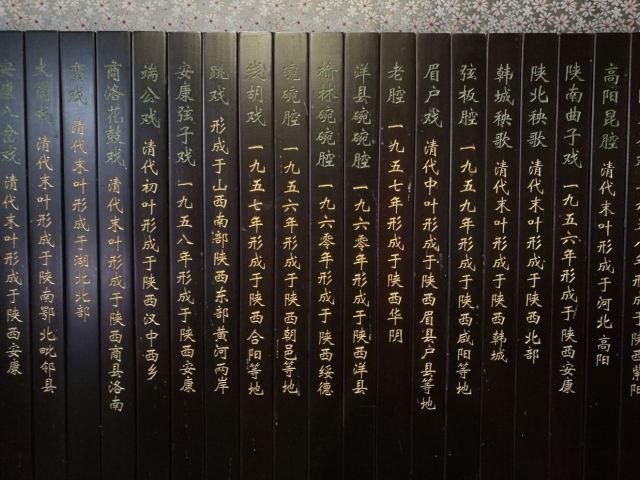 高阳昆腔 清代末叶形成于河北高阳
陕南曲子戏 一九五六年形成于陕西安康
陕北秧歌 清代末叶形成于陕西北部
韩城秧歌 清代末叶形成于陕西韩城
弦板腔 一九五七年形成于陕西咸阳等地
眉户戏 清代中叶形成于陕西眉县户县等地
老腔 一九五七年形成于陕西华阴
洋县碗碗腔 一九六零年形成于陕西洋县
榆林碗碗腔 一九六零年形成于陕西绥德
碗碗腔 一九五六年形成于陕西朝邑等地
胡戏 一九五七年形成于陕西合阳等地
跳戏 形成于山西南部陕西东部黄河两岸
安康弦子戏 一九五八年形成于陕西安康
端公戏 清代初叶形成于陕西汉中西乡
商洛花鼓戏 清代末叶形成于陕西商县洛南
蛮戏 清代末叶形成于湖北北部
大筒戏 清代末叶形成于陕南鄂北毗邻县
安康八岔戏 清代末叶形成于陕西安康